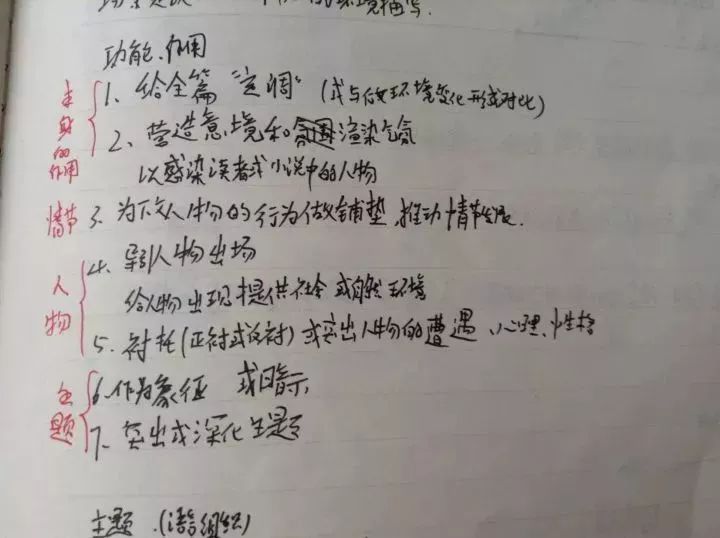 环境描写.
功能、作用
本身的作用
1、给全篇“定调”（或与后文环境变化形成对比）
2、营造意境和渲染气氛
以感染读者或小说中的人物
情节
3、为下文人物的行为做铺垫,推动情节发展.
人物
4、引人物出场
给人物出现提供社会或自然环境
5、衬托(正衬或反衬)或突出人物的遭遇、心理、性格
主题
6、作为象征 或暗示
7、突出或深化主题
主题.(语言组织)